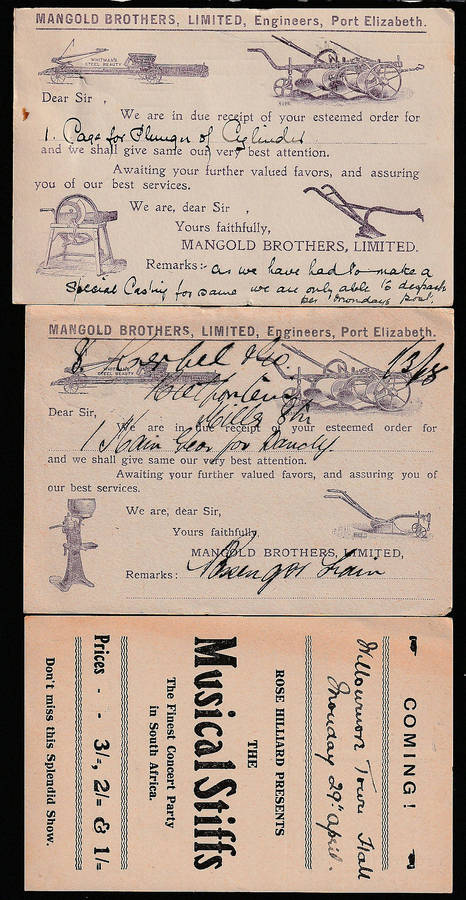 MANGOLD BROTHERS, LIMITED, Engineers, Port Elizabeth.
WHITMAN'S
STEEL BEAUTY
Dear Sir ,
We are in due receipt of your esteemed order for
1. Cage for Plunger of Cylinder
and we shall give same our very best attention.
Awaiting your further valued favors, and assuring
you of our best services.
We are, dear Sir ,
Yours faithfully,
MANGOLD BROTHERS, LIMITED.
Remarks:- as we have had to make a
Special Casting for same we are only able to despatch
per Mondays Post.
MANGOLD BROTHERS, LIMITED, Engineers, Port Elizabeth.
1/3/18
STEEL BEAUTY
Dear Sir,
We are in due receipt of your esteemed order for
1 Main Gear for Dandy.
and we shall give same our very best attention.
Awaiting your further valued favors, and assuring you of
our best services.
We are, dear Sir,
Yours faithfully,
MANGOLD BROTHERS, LIMITED,
Remarks: Passenger Train
COMING!
Willowmore Town Hall
Monday 29th April.
ROSE HILLIARD PRESENTS
THE
Musical Stiffs
The Finest Concert Party
in South Africa.
Prices - - 3/-, 2/= & 1/=
Don't miss this Splendid Show.